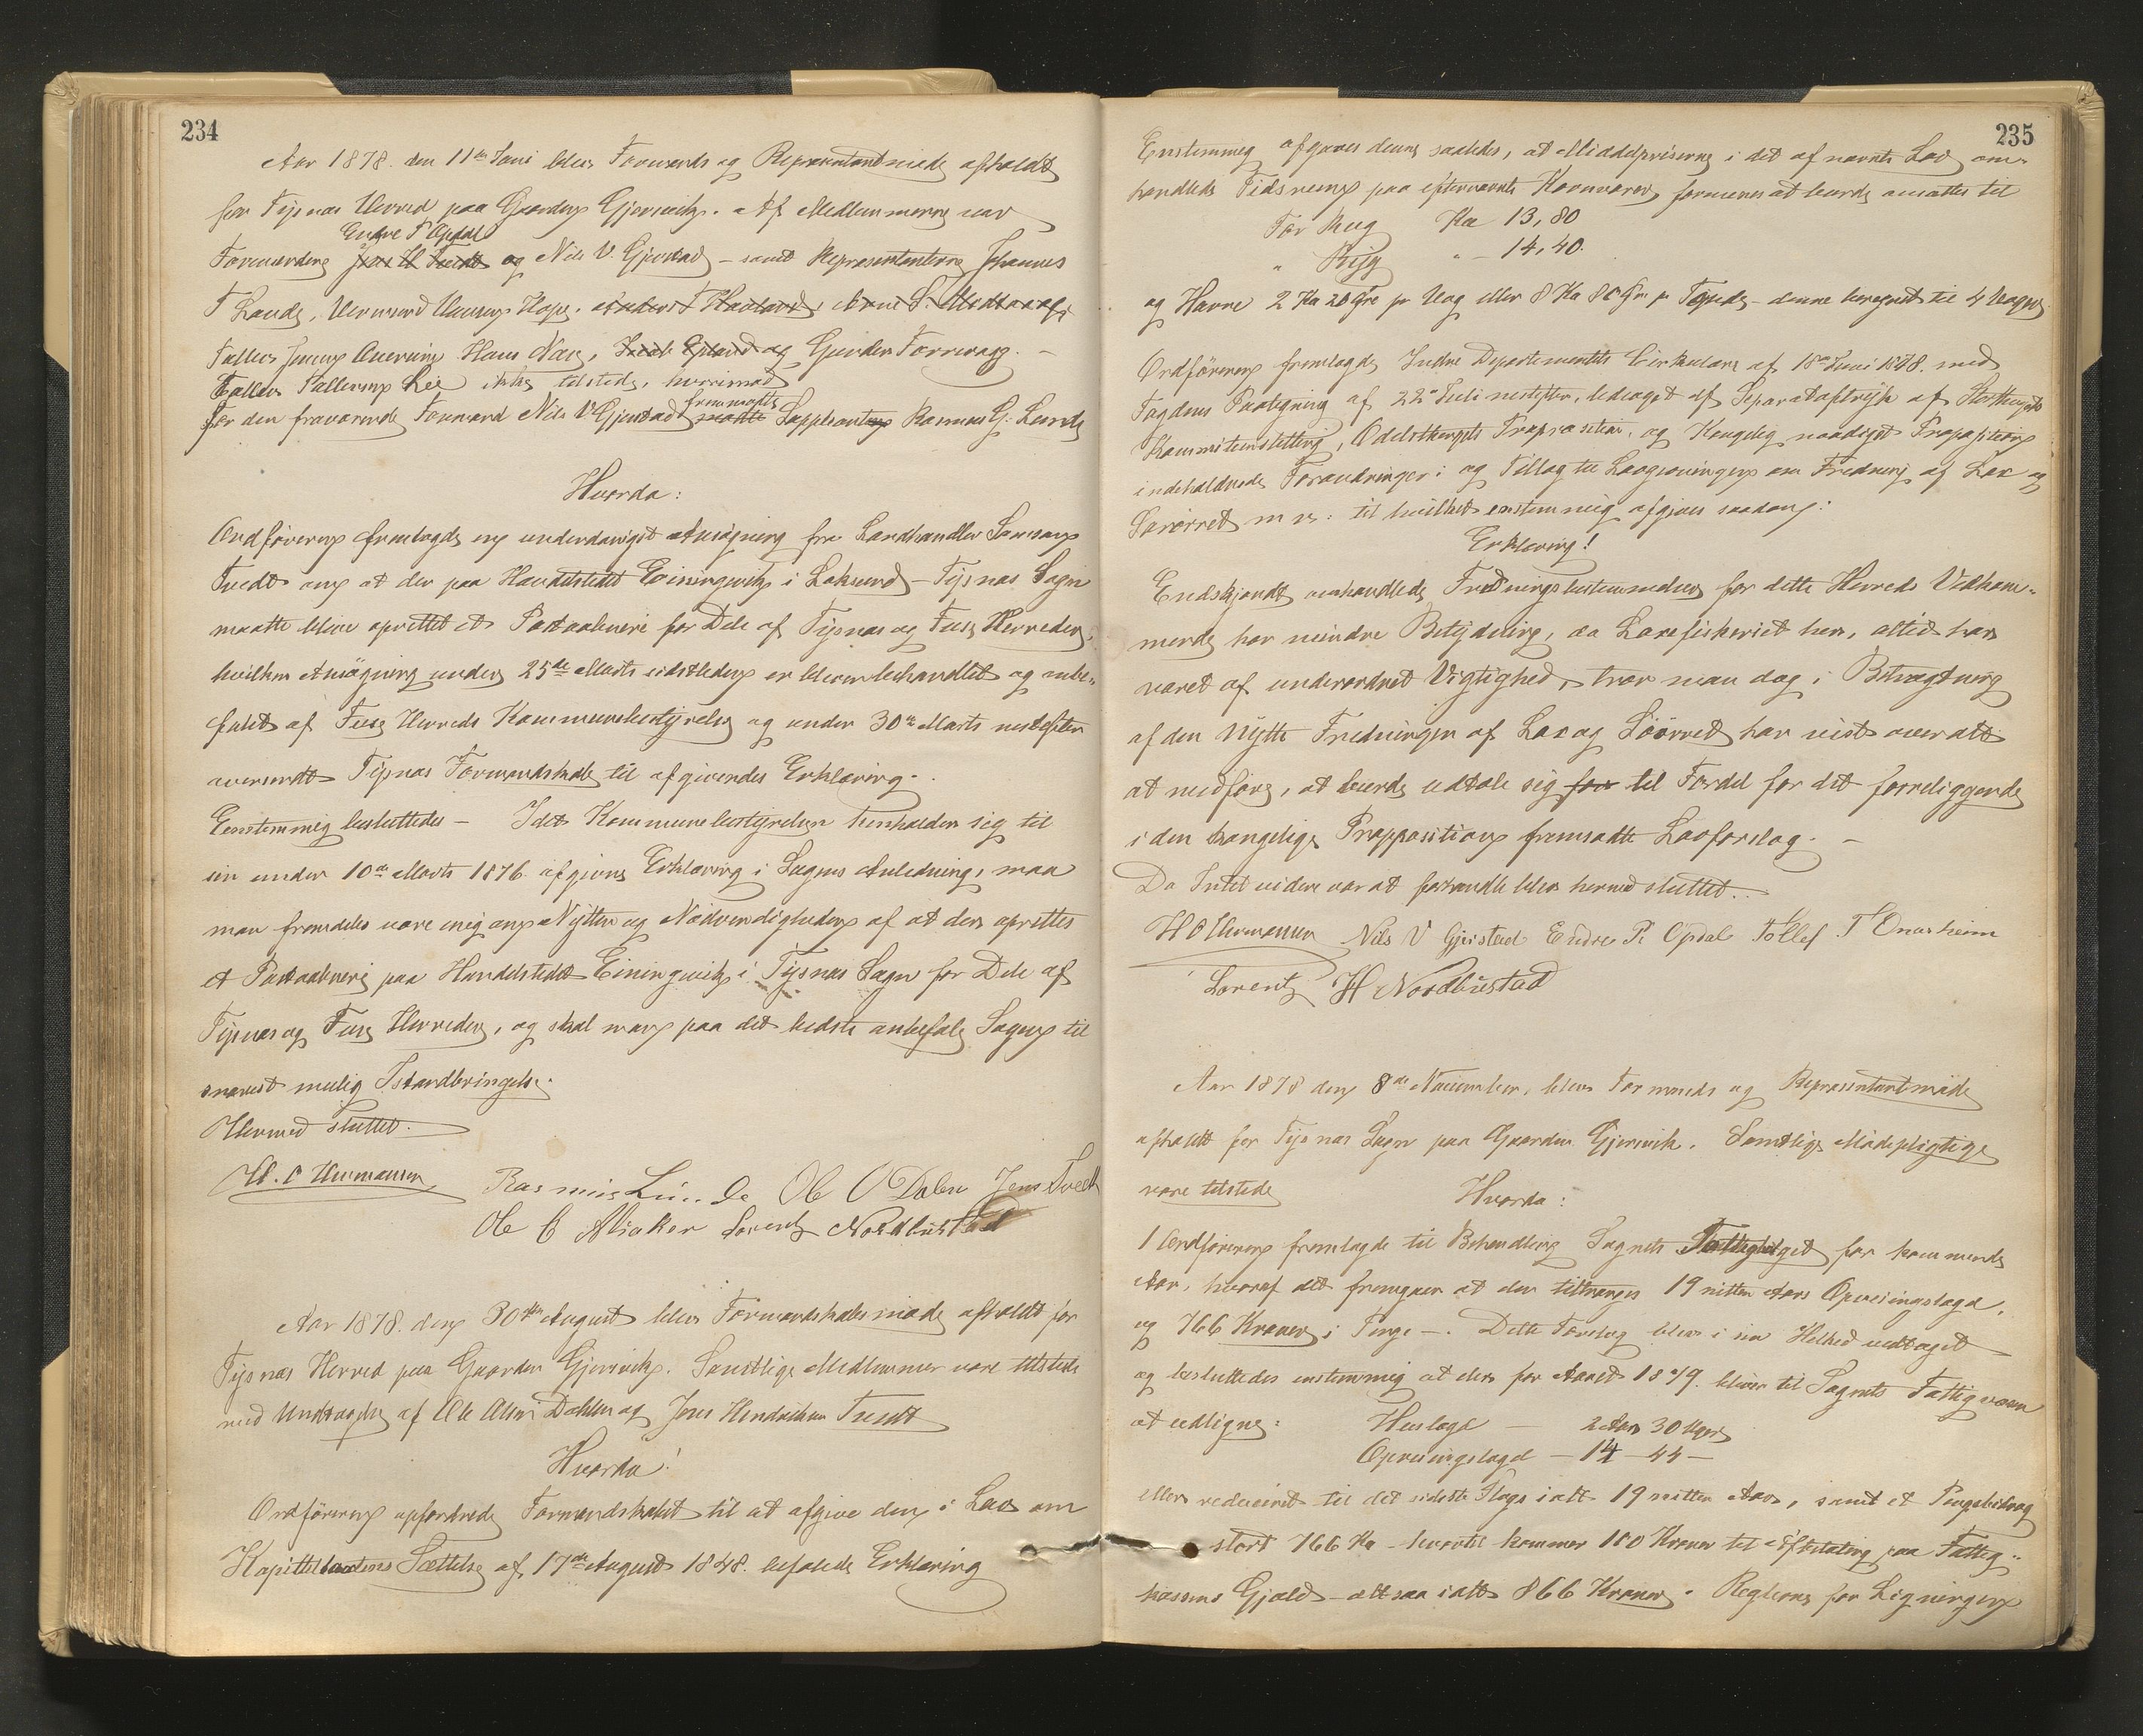 234
Aar 1878 den 11te Juni blev Formands og Repræsentantmøde afholdt
for Tysnæs Herred paa Gaarden Gjersvik. Af Medlemmerne var
Endre P Opdal
Formændene Jens H Tvedt og Nils V. Gjerstad – samt Repræsentanterne Johannes
T Lande, Vermund Hope, Haaland,
Tollev Jensen Hans Næs, Jacob Epland og Gunder Forrevaag. –
Tollev Tollevsen Lie ikke tilstede, hvorimod
For den fraværende Formand Nils V Gjerstad fremmødte mødte Suppleanten Rasmus G. Lunde
Hvorda:
Ordføreren fremlagde en underdanigst Ansøgning fra Landhandler Samson
Tvedt om at der paa Handelstedet Einingevik i Loksund – Tysnæs Sogn
maatte blive oprettet et Postaabneri for Dele af Tysnæs og Fuse Herreder,
hvilken Ansøgning under 25de Marts sidstleden er bleven behandlet og anbe-
falet af Fuse Herreds Kommunebestyrelse og under 30te Marts nestefter
oversendt Tysnæs Formandskab til afgivendes Erklæring.
Eenstemmig besluttedes – Idet Kommunebestyrelsen henholder sig til
sin under 10de Marts 1876 afgivne Erklæring i Sagens Anledning, maa
man fremdeles være enig om Nytten og Nødvendigheden af at der oprettes
et Postaabneri paa Handelstedet Einingevik i Tysnæs Sogn for Dele af
Tysnæs og Fuse Herreder, og skal man paa det bedste anbefale Sagen til
snarest mulig Istandbringelse.
Hermed sluttet.
H. O Hermansen Rasmus Lunde Ole O Dalen Jens Tvedt
Ole C Aliaker Lorentz Nordbustad
Aar 1878 den 30te August blev Formandskabsmøde afholdt for
Tysnæs Herred paa Gaarden Gjersvik. Samtlige Medlemmer vare tilstede
med Undtagelse af Ole Olsen Dahlen og Jens Hendriksen Tvedt
Hvorda!
Ordføreren opfordrede Formandskabet til at afgive den i Lov om
Kapitelstaxtens Sættelse af 17de August 1848 befalede Erklæring
235
Enstemmig afgaves denne saaledes, at Middelpriserne i det af nævnte Lov om-
handlede Tidsrum paa efternævnte Kornvarer formenes at burde ansættes til
For Rug Kr 13,80
" Byg " – 14,40.
og Havre 2 Kr 20 Øre pr Vog eller 8 Kr 80 Øre pr Tønde – denne beregnet til 4 Voger
Ordføreren fremlagde Indre Departementets Cirkulære af 18de Juni 1878 med
Fogdens Paategning af 22de Juli nestefter, ledsaget af Separataftryk af Storthings
Kommiteindstilling, Odelsthingets Proposition, og Kongelig naadigst Proposition
indeholdende Forandringer i og Tillæg til Lovgivningen om Fredning af Lax og
Søørret m v: til hvilket enstemmig afgives saadan:
Erklæring!
Endskjøndt omhandlede Fredningsbestemmelser for dette Herreds Vedkom-
mende har mindre Betydning, da Laxefiskeriet her, altid har
været af underordnet Vigtighed, tror man dog i Betragtning
af den Nytte Fredningen af Lax og Søørret har vist overalt
at medføre, at burde udtale sig for til Fordel for det foreliggende
i den kongelige Propposition fremsatte Lovforslag. –
Da Intet videre var at forhandle blev hermed sluttet.
H O Hermansen Nils V Gjerstad Endre P. Opdal Tollef T Onarheim
Lorentz H Nordbustad
Aar 1878 den 8de November, blev Formands og Repræsentantmøde
afholdt for Tysnæs Sogn paa Gaarden Gjersvik. Samtlige Mødepligtige
vare tilstede
Hvorda:
1 Ordføreren fremlagde til Behandling Sognets Fattigbudget for kommende
Aar, hvoraf det fremgaar at der tiltrænges 19 nitten Aars Opensionslægd,
og 766 Kroner i Penge –. Dette Forslag blev i sin Helhed vedtaget
og besluttedes enstemmig at der for Aaret 1879 bliver til Sognets Fattigvæsen
at udligne: Huslægd – 2 Aar 30 Uger
Opensionslægd – 14 – 44 –
eller reduceret til det sidste Slags ialt 19 nitten Aar, samt et Pengebidrag
stort 766 Kr – hvortil kommer 100 Kroner til Afbetaling paa Fattig-
kassens Gjæld – altsaa ialt 866 Kroner. Reglerne for Ligningen